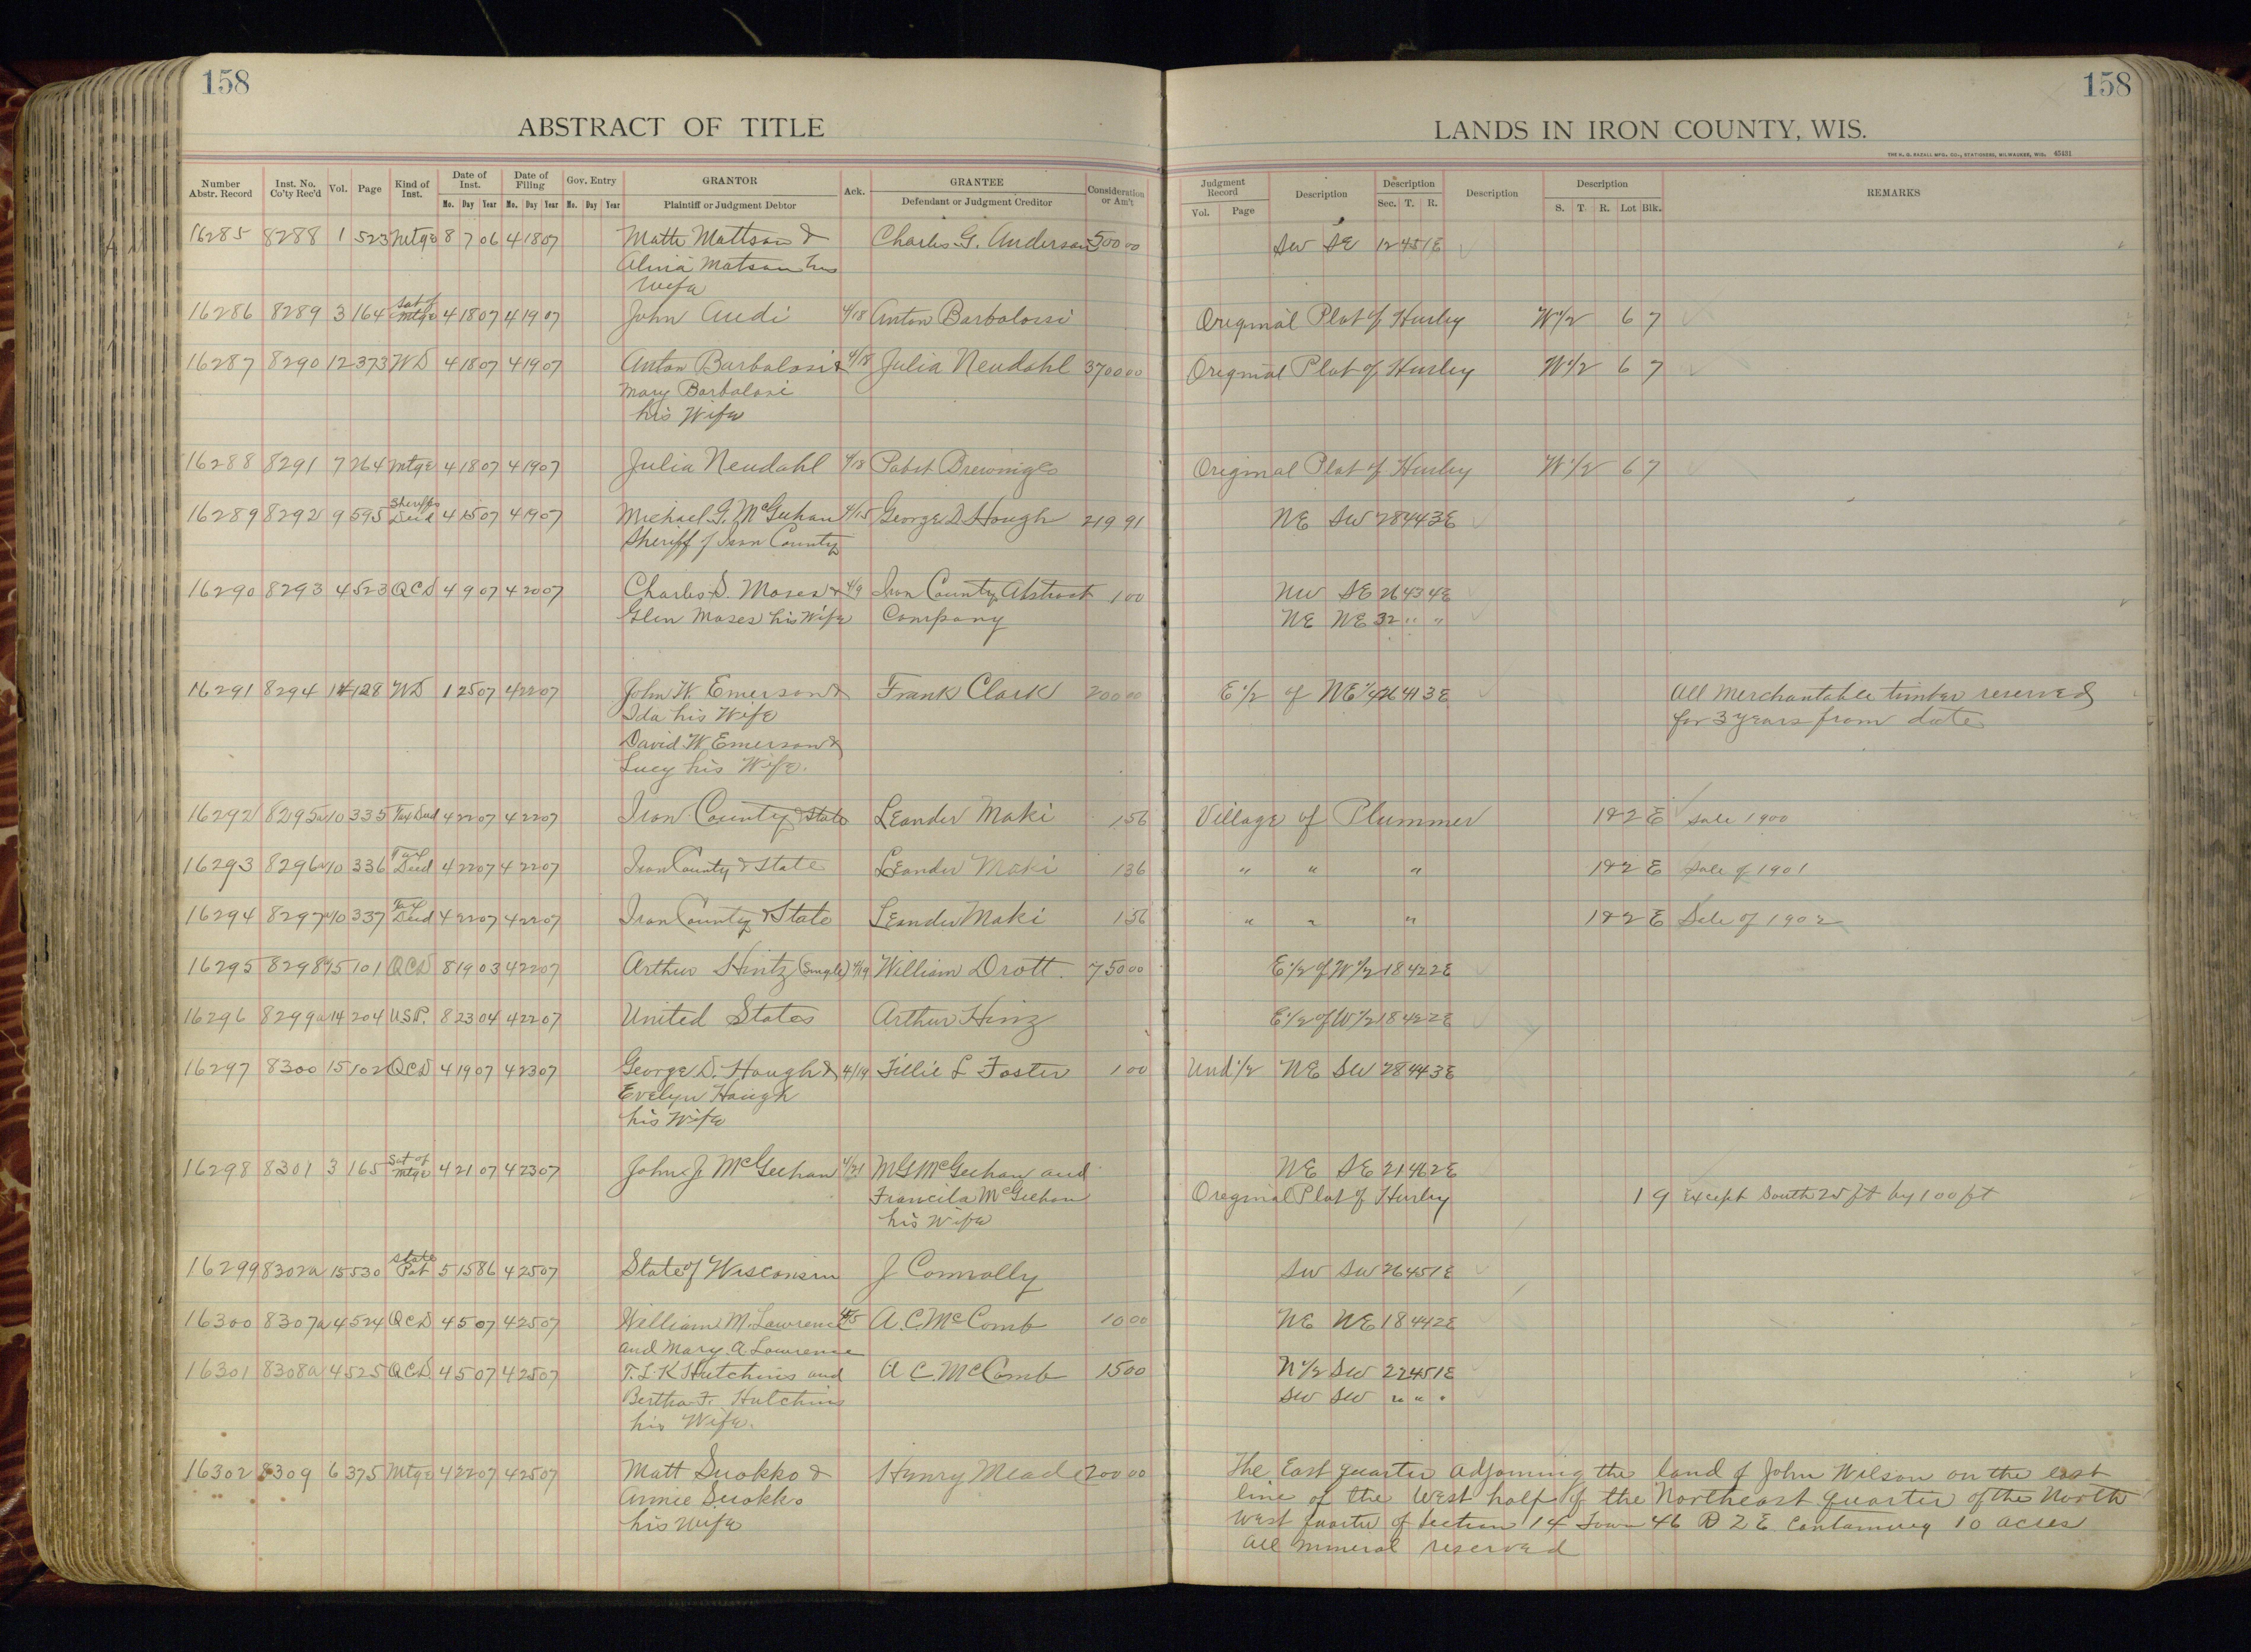 158
ABSTRACT OF TITLE
Number Abstr. Record | Inst. No. Co'ty Rec'd | Vol. | Page | Kind of Inst. | Date of Inst. Mo. Day Year | Date of Filing Mo. Day Year | Gov. Entry Mo. Day Year | GRANTOR Plaintiff or Judgment Debtor | Ack. | GRANTEE Defendant or Judgment Creditor | Consideration or Am't
16285 8288 1 523 Mtge 8 7 06 4 18 07 Matti Mattson & Charles G. Anderson 500 00
Alina Matson his
Wife
16286 8289 3 164 Sat of Mtge 4 18 07 4 19 07 John Audi 4/18 Anton Barbalossi
16287 8290 12 373 WD 4 18 07 4 19 07 Anton Barbalosi & 4/18 Julia Neudahl 3700 00
Mary Barbalosi
his Wife
16288 8291 7 264 Mtge 4 18 07 4 19 07 Julia Neudahl 4/18 Pabst Brewing Co
16289 8292 9 595 Sheriffs Deed 4 15 07 4 19 07 Michael G. McGeehan 4/15 George D. Hough 219 91
Sheriff of Iron County
16290 8293 4 523 QCD 4 9 07 4 20 07 Charles S. Moses & 4/9 Iron County Abstract 1 00
Glen Moses his Wife Company
16291 8294 14 128 WD 1 25 07 4 22 07 John W. Emerson & Frank Clark 200 00
Ida his Wife
David W. Emerson &
Lucy his Wife.
16292 8295a 10 335 Tax Deed 4 22 07 4 22 07 Iron County & State Leander Maki 1 56
16293 8296a 10 336 Tax Deed 4 22 07 4 22 07 Iron County & State Leander Maki 1 36
16294 8297a 10 337 Tax Deed 4 22 07 4 22 07 Iron County & State Leander Maki 1 56
16295 8298a 15 101 QCD 8 19 03 4 22 07 Arthur Hintz (Single) 8/19 William Drott. 750 00
16296 8299a 14 204 USP. 8 23 04 4 22 07 United States Arthur Hinz
16297 8300 15 102 QCD 4 19 07 4 23 07 George D. Hough & 4/19 Tillie L Foster 1 00
Evelyn Hough
his Wife
16298 8301 3 165 Sat of Mtge 4 21 07 4 23 07 John J McGeehan 4/21 M G McGeehan and
Francila McGeehan
his Wife
16299 8302a 15 530 State Pat 5 15 86 4 25 07 State of Wisconsin J Connolly
16300 8307a 4 524 QCD 4 5 07 4 25 07 William M. Lawrence 4/5 A. C. McComb 10 00
and Mary A. Lawrence
16301 8308a 4 525 QCD 4 5 07 4 25 07 T. L. K Hutchins and A. C. McComb 15 00
Bertha F. Hutchins
his Wife.
16302 8309 6 375 Mtge 4 22 07 4 25 07 Matt Suokko & Henry Meade 200 00
Annie Suokko
his Wife
158
LANDS IN IRON COUNTY, WIS.
THE H. G. RAZALL MFG. CO., STATIONERS, MILWAUKEE, WIS. 45431
Judgment Record Vol. Page | Description | Description Sec. T. R. | Description | Description S. T. R. Lot Blk. | REMARKS
SW SE 12 45 1E
Original Plat of Hurley W 1/2 6 7
Original Plat of Hurley W 1/2 6 7
Original Plat of Hurley W 1/2 6 7
NE SW 28 44 3E
NW SE 26 43 4E
NE NE 32 " "
E 1/2 of NE 1/4 26 41 3E All Merchantable timber reserved
for 3 years from date
Village of Plummer 1&2 E Sale 1900
" " " 1&2 E Sale of 1901
" " " 1&2 E Sale of 1902
E 1/2 of W 1/2 18 42 2E
E 1/2 of W 1/2 18 42 2E
Und 1/2 NE SW 28 44 3E
NE SE 21 46 2E
Original Plat of Hurley 1 9 Except South 25 ft by 100 ft
SW SW 26 45 1E
NE NE 18 44 2E
N 1/2 SW 22 45 1E
SW SW " " "
The East quarter adjoining the land of John Wilson on the east
line of the West half of the Northeast quarter of the North
West quarter of Section 14 Town 46 R 2 E. Containing 10 acres
all mineral reserved